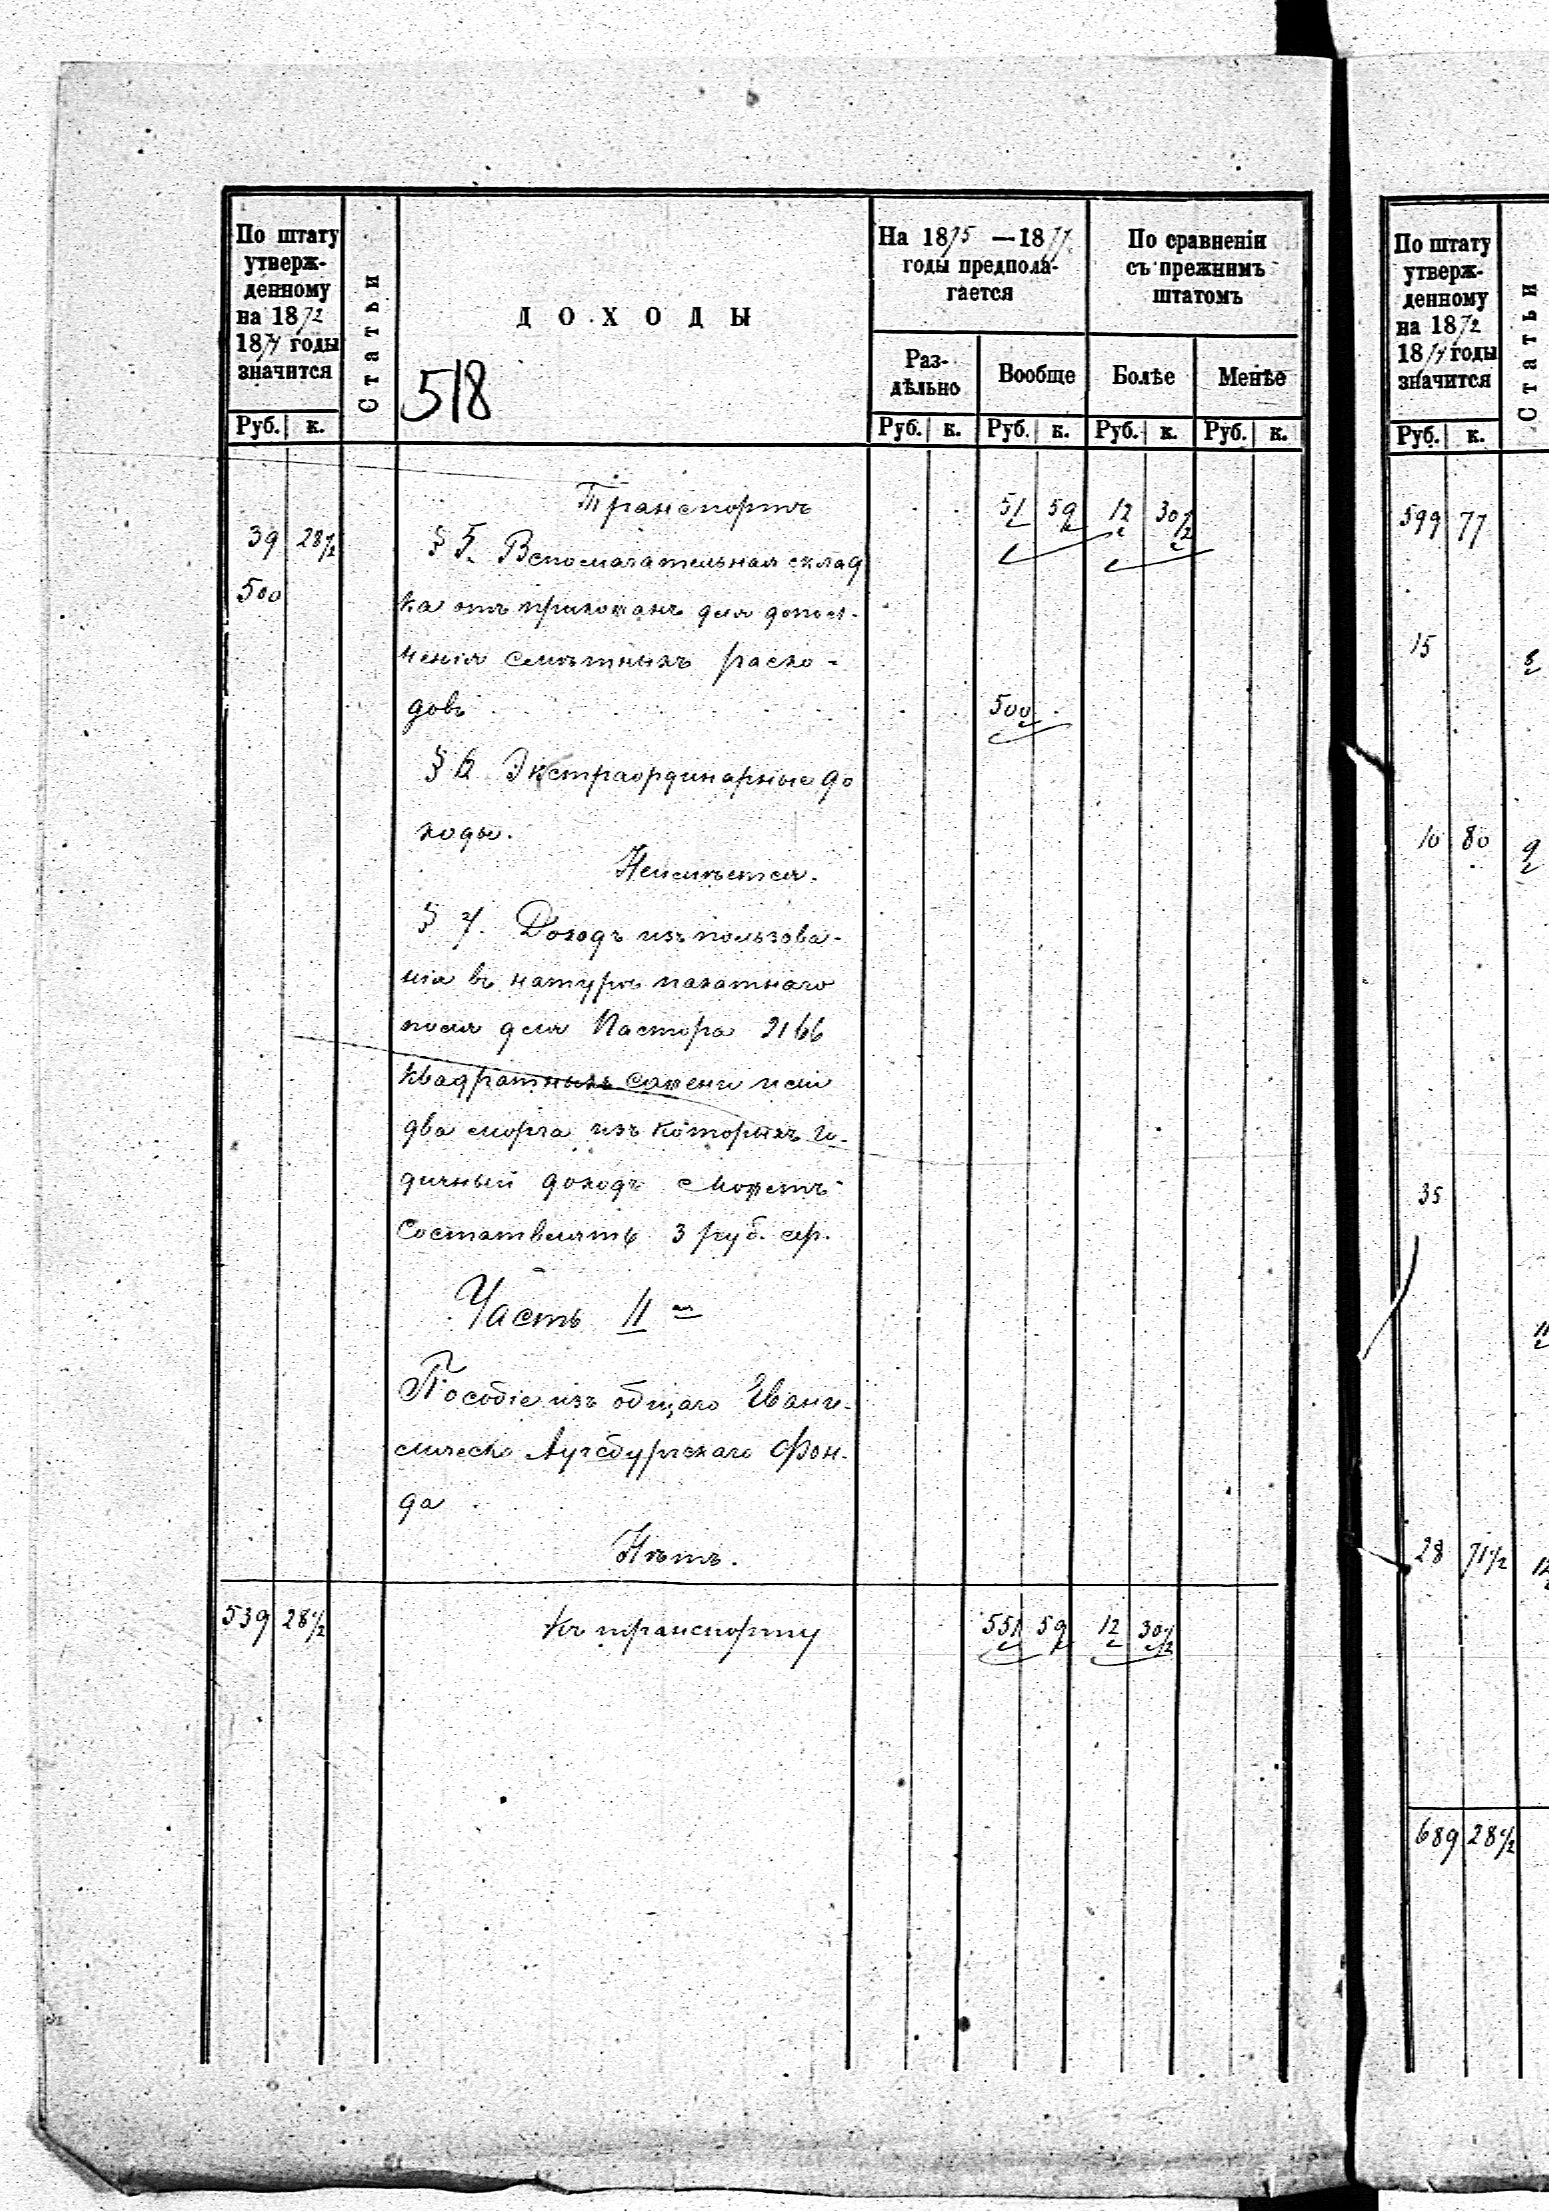 По штату
утверж-
денному
на 1872
1874 годы
значится
Руб. к.
Статьи
ДОХОДЫ
518
На 1875 —1877
годы предпола-
гается
Раз-
дѣльно
Вообще
Руб. к. Руб. к.
По сравненіи
съ прежнимъ
штатомъ
Болѣе Менѣе
Руб. к. Руб. к.
Транспортъ 51 59 12 30½
39 28½ § 5. Вспомагательная склад
500 ка отъ прихожанъ для допол-
ненія смѣтныхъ расхо-
довъ 500
§ 6 Экстраординарные до
ходы.
Неимѣется.
§ 7. Доходъ изъ пользова-
нія въ натурѣ пахатнаго
поля для Пастора 2166
квадратныхъ сажени или
два морга изъ которыхъ го-
дичный доходъ можетъ
составлять 3 руб. сер.
Часть II ая
Пособіе изъ общаго Еванге-
лическо Аугсбургскаго Фон-
да
Нѣтъ.
539 28½ Къ транспорту 551 59 12 30½
По штату
утверж-
денному
на 1872
1874 годы
значится
Руб. к.
Статьи
599 77
15 8
10 80 9
35
11
28 71½ 12
689 28½